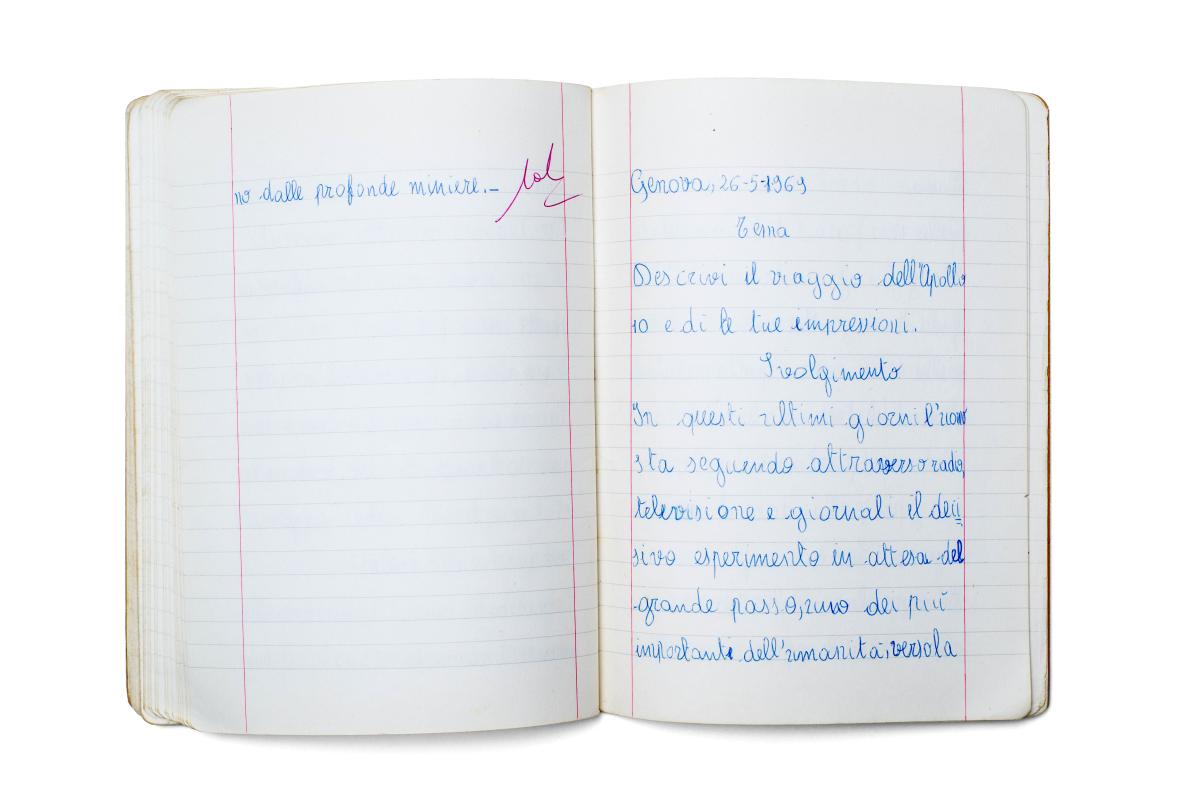 no dalle profonde miniere.-
Genova, 26-5-1969
Tema
Descrivi il viaggio dell'Apollo
10 e di le tue impressioni.
Svolgimento
In questi ultimi giorni l'uomo
sta seguendo attraverso radio,
televisione e giornali il deci=
sivo esperimento in attesa del
grande passo, uno dei più
importanti dell'umanità, verso la